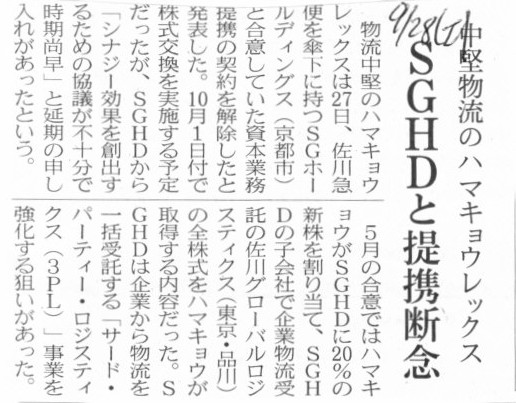 9/28
中堅物流のハマキョウレックス
SGHDと提携断念
物流中堅のハマキョウ
レックスは27日、佐川急
便を傘下に持つSGホー
ルディングス（京都市）
と合意していた資本業務
提携の契約を解除したと
発表した。10月1日付で
株式交換を実施する予定
だったが、SGHDから
「シナジー効果を創出す
るための協議が不十分で
時期尚早」と延期の申し
入れがあったという。
5月の合意ではハマキ
ョウがSGHDに20%の
新株を割り当て、SGH
Dの子会社で企業物流受
託の佐川グローバルロジ
スティクス（東京・品川）
の全株式をハマキョウが
取得する内容だった。S
GHDは企業から物流を
一括受託する「サード・
パーティー・ロジスティ
クス（3PL）」事業を
強化する狙いがあった。